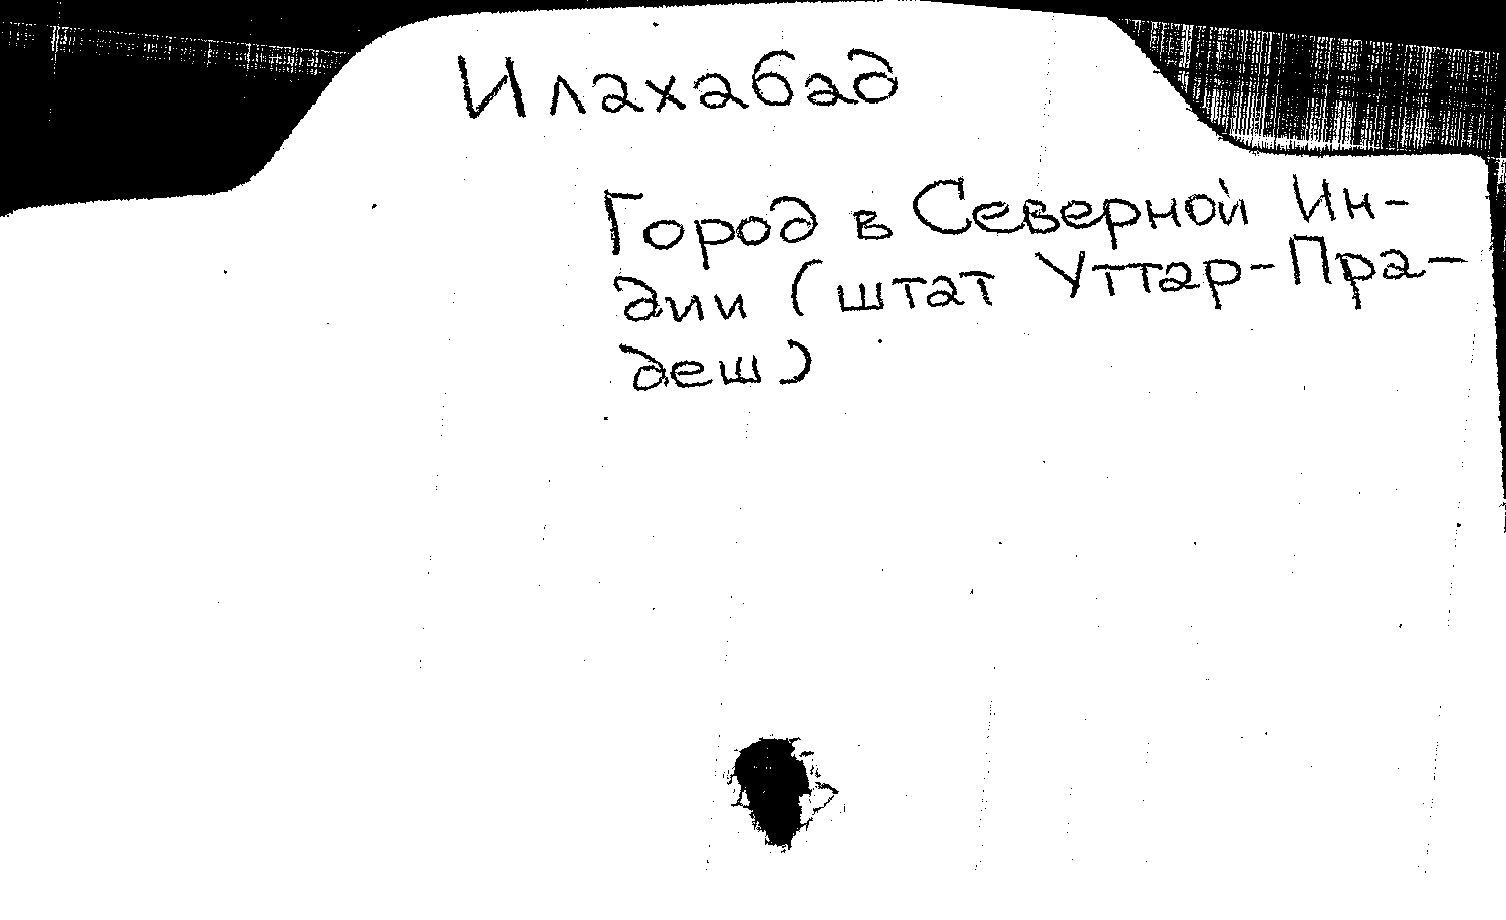 Илахабад
Город в Северной Ин-
дии (штат Уттар-Пра-
деш)